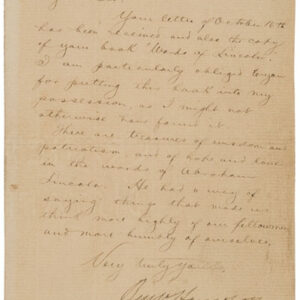 Your letter of October 16th
has been received and also the copy
of your book "Words of Lincoln."
I am particularly obliged to you
for putting this book into my
possession, as I might not
otherwise have found it.
There are treasures of wisdom and
patriotism and of hope and love
in the words of Abraham
Lincoln. He had a way of
saying things that made us
think more highly of our fellowmen
and more humbly of ourselves.
Very truly yours,